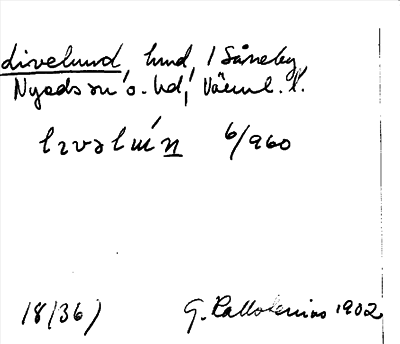 divelund, lund, i Såneby,
Nyeds sn o. hd, Värml. l.
6/960
18(36)
G. Kallstenius 1902